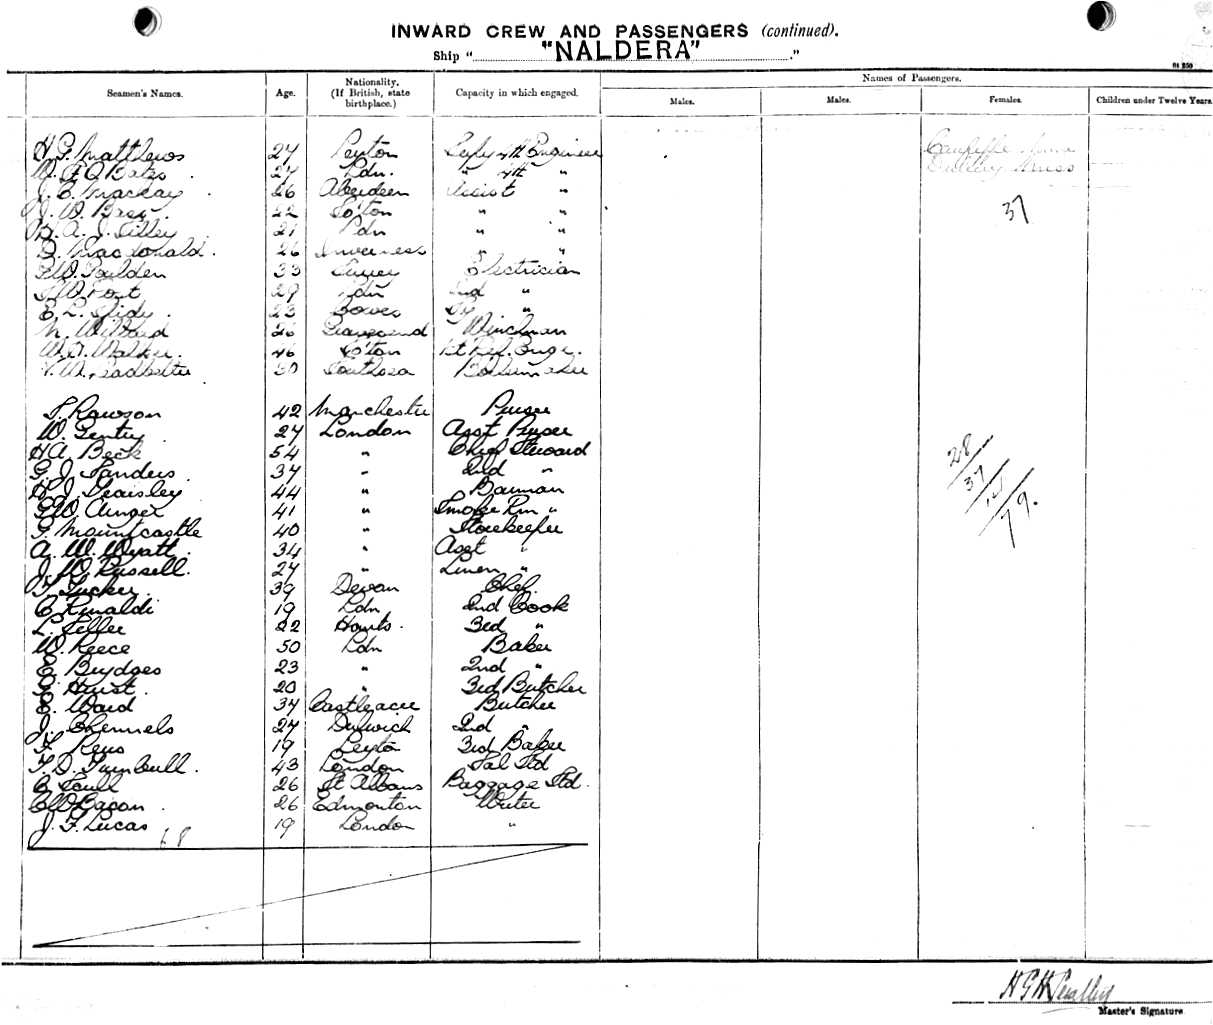 INWARD CREW AND PASSENGERS (continued).
Ship "NALDERA"
Seamen's Names. Age. Nationality. (If British, state birthplace.) Capacity in which engaged. Names of Passengers.
Males. Males. Females. Children under Twelve Years.
H. G. Matthews 27 Leyton 4th Engineer
W. F. O. Bates 27 Ldn. " 4th "
J. C. Mackay 26 Aberdeen Assist " Miss
J. W. Bass. 22 So'ton " " 37
H. A. J. Tilley 21 Ldn " "
D. Macdonald. 26 Inverness " "
F. W. Paulden 33 Surrey Electrician
29 Ldn 2nd "
E. L. 23 Bower "
26 Gravesend Winchman
W. Walker. 46 So'ton 1st Ref. Engr.
Leadbetter 50 Southsea Boilermaker
T. Rawson 42 Manchester Purser
W. Gentry 27 London Asst Purser
H A. Beck 54 " Chief Steward
G. J. Sanders 37 " 2nd " 28
H. J. 44 " Barman 37
G. W. Aunger 41 " Smoke Rm " 14
G. Mountcastle 40 " Storekeeper 79.
A. W. Wyatt. 34 " Asst "
J. W. Russell. 27 " Linen "
T. Tucker. 39 Devon Chef.
C. Rinaldi 19 Ldn 2nd Cook
L. Feller 22 Hants. 3rd "
W. Reece 50 Ldn Baker
E. Brydges 23 " 2nd "
G. Hurst. 20 " 3rd Butcher
E. Ward 34 Castleacre Butcher
J. Chennels 27 Dulwich 2nd "
F. Kens 19 Leyton 3rd Baker
T. D. Turnbull. 43 London Sal Std
C. Saull 26 St Albans Baggage Std.
C W Bacon. 26 Edmonton Writer
J. F. Lucas 19 London "
68
Master's Signature